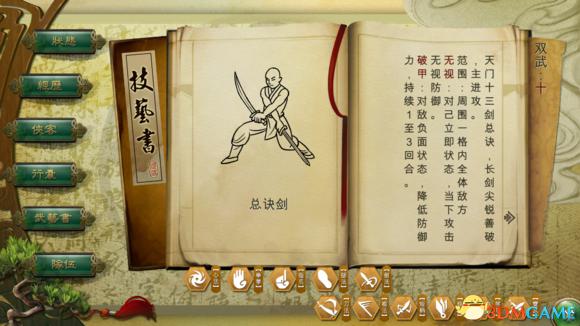 狀態
經歷
俠客
行囊
武藝書
隊伍
技藝書
总诀剑
双武：十
天门十三剑总诀，长剑尖锐善破
，主进攻。
范围：周围一格内全体敌方
无视：对己立即状态，当下攻击
无视防御。
破甲：对敌负面状态，降低防御
力，持续1至3回合。
3DMGAME